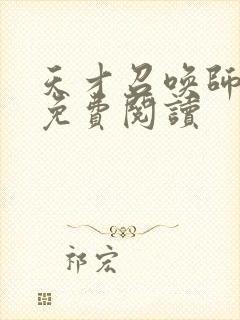 天才召喚師
免費閱讀
祁宏